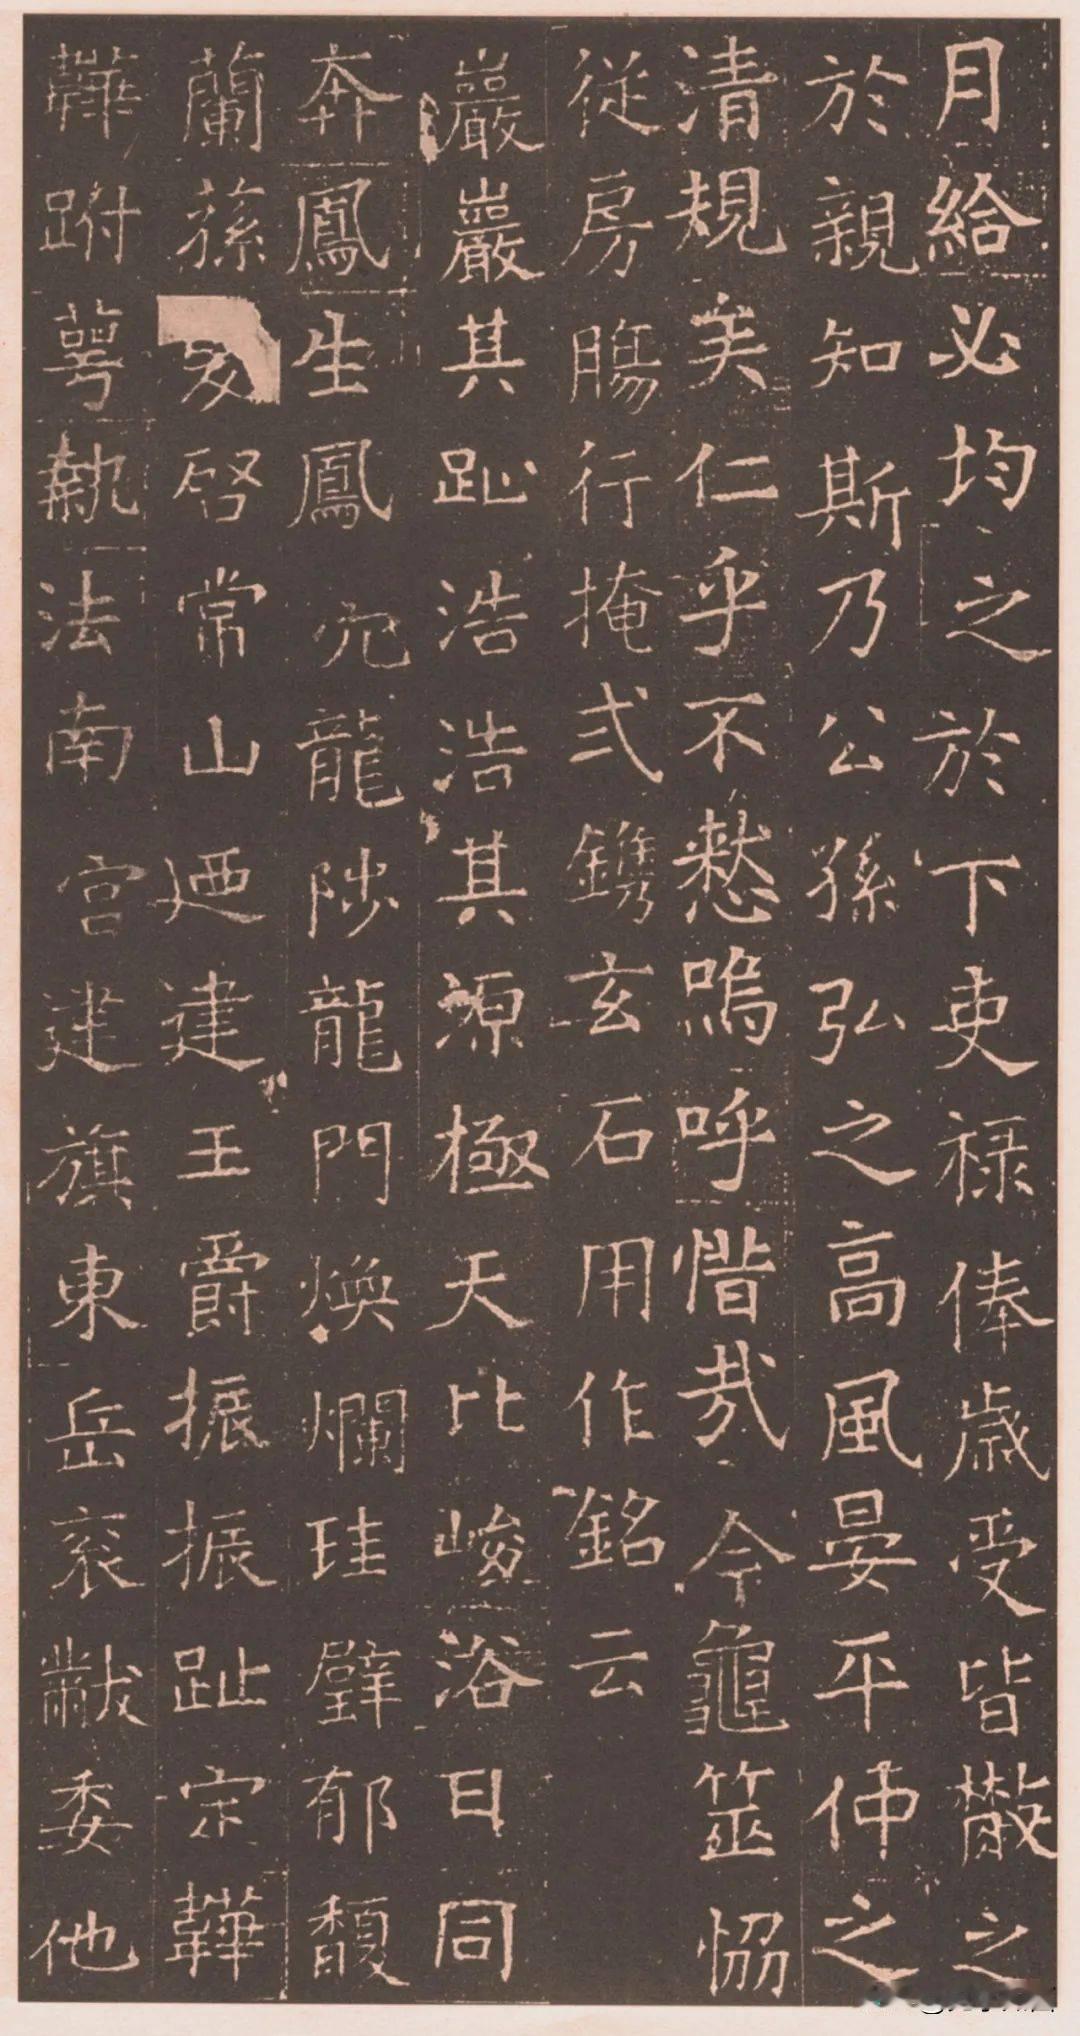 月給必均之於下吏祿俸歲受皆散之
於親知斯乃公孫弘之高風晏平仲之
清規矣仁乎不慭嗚呼惜哉今龜筮恊
從房腸行掩式鐫玄石用作銘云
巖巖其趾浩浩其源極天比峻浴日同
奔鳳生鳳穴龍陟龍門煥爛珪璧郁馥
蘭蓀爰啓常山迺建王爵振振趾宗韡
韡跗萼執法南宮建旗東岳衮黻委他